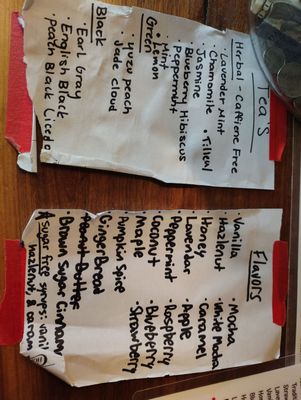 Tea's
Herbal - Caffiene Free
• Lavender Mint
• Chamomile • Tilleul
Jasmine
• Blueberry Hibiscus
• Peppermint
Green
Mint
• Yuzu peach
Jade cloud
Black
Earl Gray
• English Black
• Peach Black
Flavors
• Vanilla • Mocha
• Hazelnut • White Mocha
• Honey • Caramel
• Lavendar • Apple
Peppermint • Raspberry
• Coconut • Blueberry
• Maple • Strawberry
Pumpkin Spice
GingerBread
Peanut Butter
• Brown Sugar Cinnamon
Sugar free syrups: vanil
hazelnut & caram